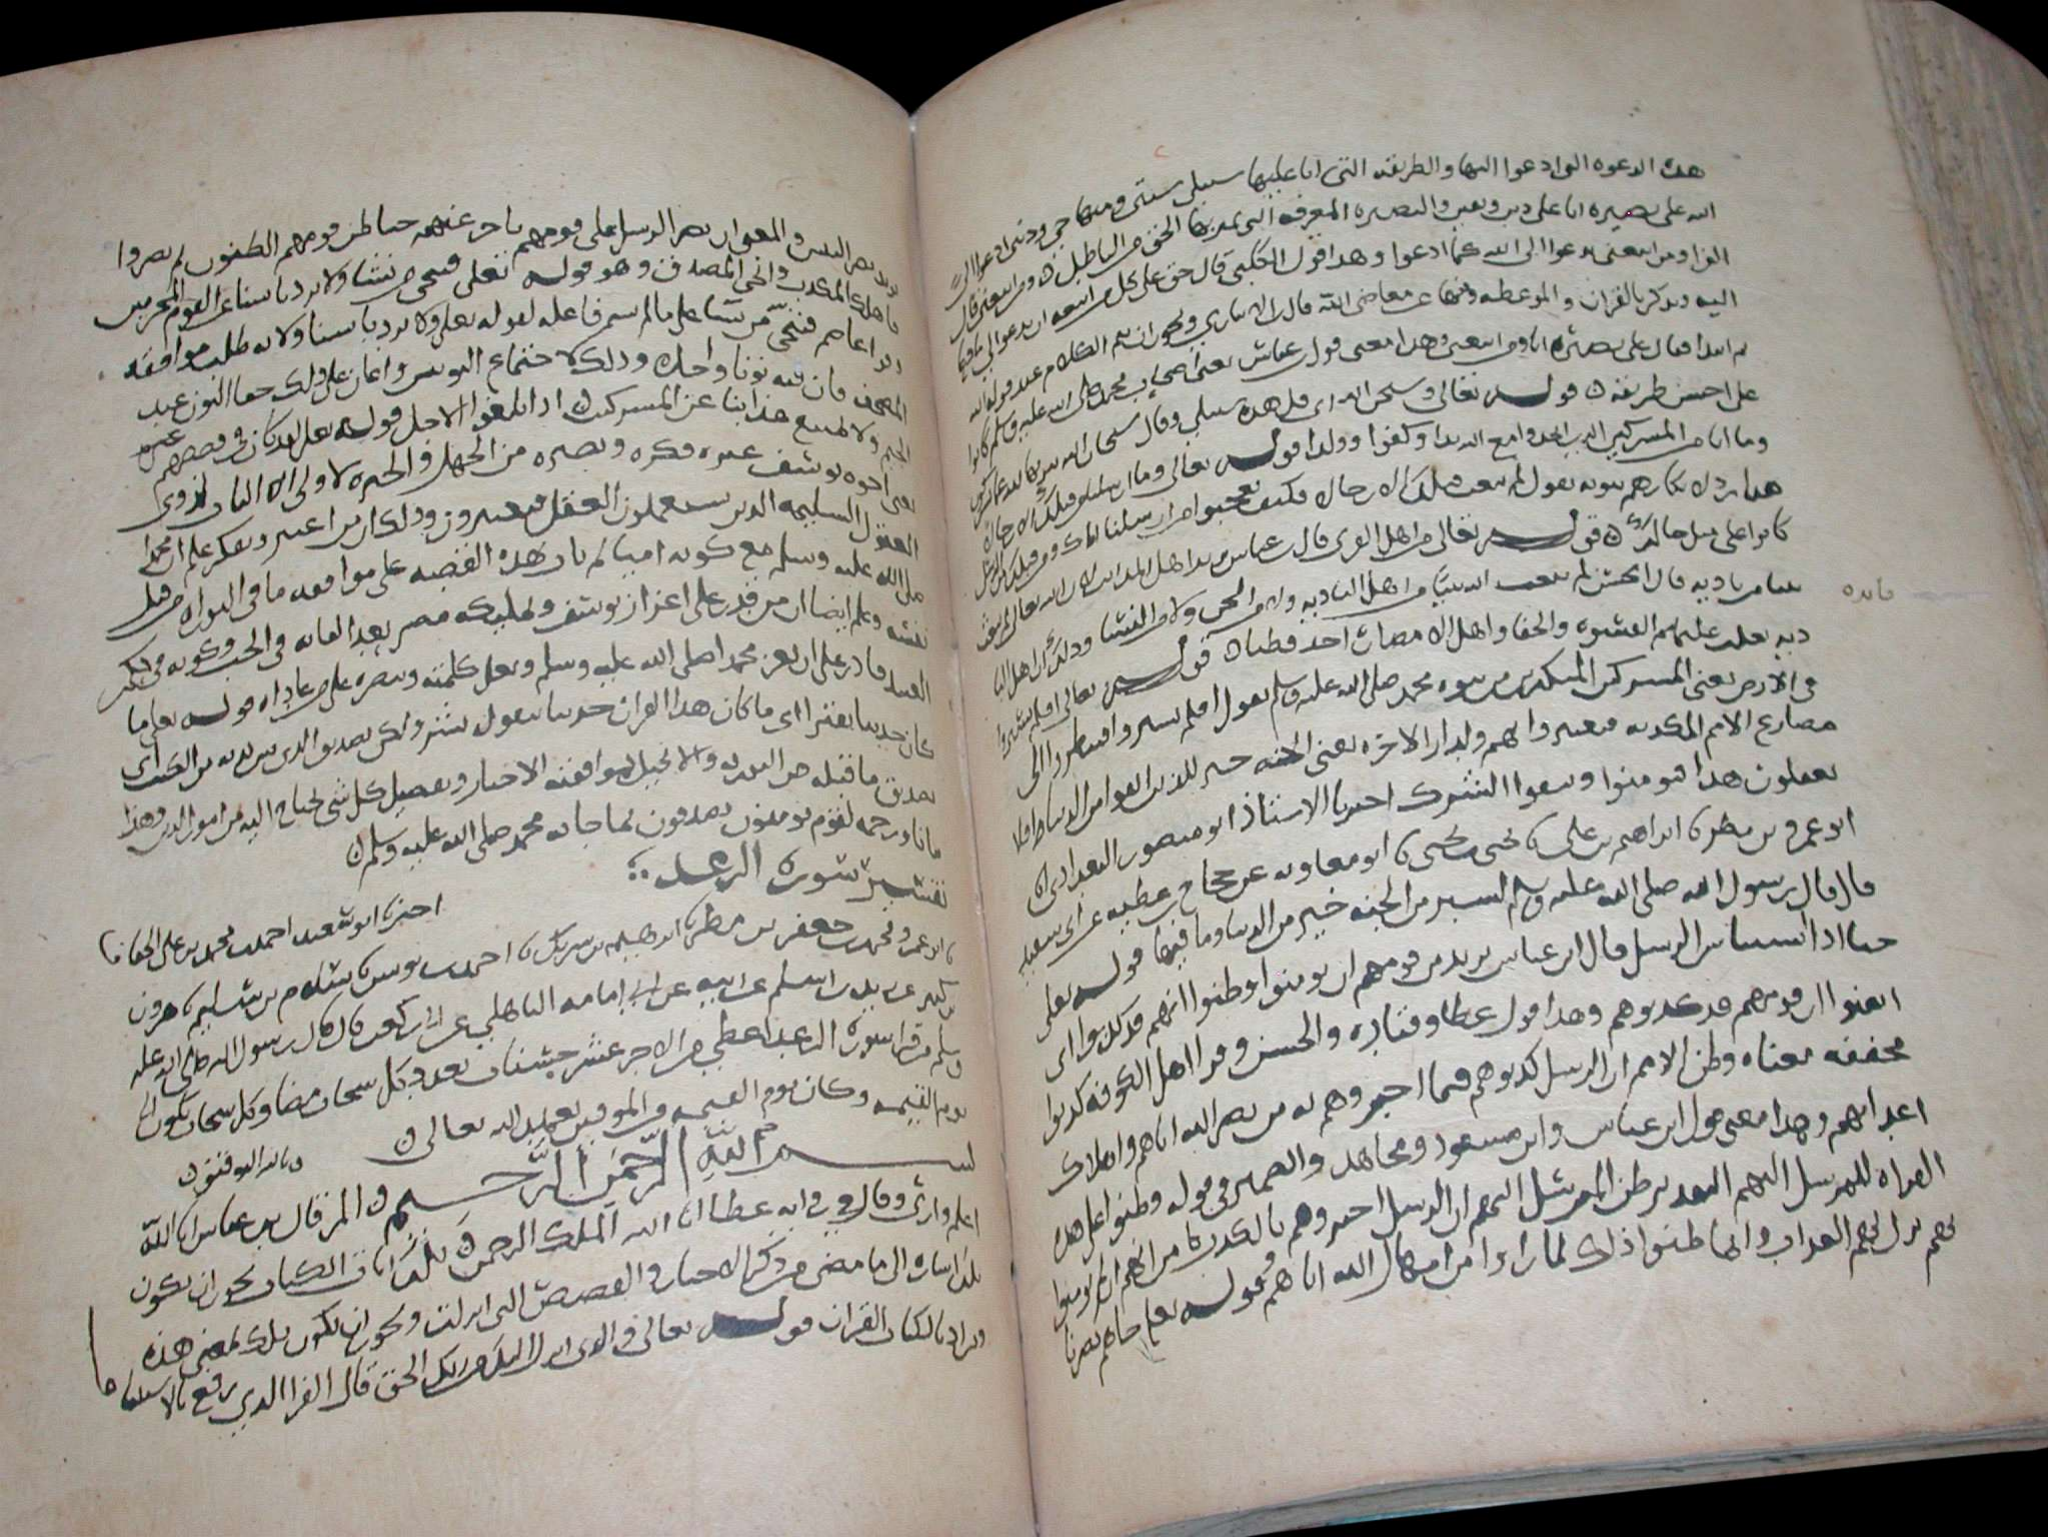 هذه الدعوة التي ادعوا اليها والطريقة التي انا عليها سبيلي سنتي ومنهاجي وديني ادعوا الى
الله على بصيرة انا على دين ويقين والبصيرة المعرفة التي يميز بها الحق من الباطل ومن اتبعني قال
الفرا ومن اتبعني يدعوا الى الله كما ادعوا وهذا قول الكلبي قال حق على كل من اتبعه ان يدعوا الى ما دعا
اليه ويذكر بالقران والموعظة وينهى عن معاصي الله قال ابن الانباري ويجوز ان يتم الكلام عند قوله الى الله
ثم ابتدا فقال على بصيرة انا ومن اتبعني وهذا معنى قول ابن عباس يعني اصحاب محمد صلى الله عليه وسلم كانوا
على احسن طريقة قوله تعالى وسبحان الله اي قل هذه سبيلي وقل سبحان الله تنزيها لله عما اشركوا
وما انا من المشركين الذين اتخذوا مع الله ندا وكفوا وولدا قوله تعالى وما ارسلنا من قبلك الا رجالا
هذا رد لانكارهم نبوته يقول لم نبعث قبلك الا رجالا فكيف تعجبوا من ارسالنا اياك ومن قبلك من الرسل
كانوا على مثل حالك قوله تعالى من اهل القرى قال ابن عباس يريد اهل المدائن لان الله تعالى لم يبعث
نبيا من بادية قال الحسن لم يبعث الله نبيا من اهل البادية ولا من الجن ولا من النسا وذلك ان اهل البا
فائدة
دية يغلب عليهم القسوة والجفا واهل الامصار احد فطنا قوله تعالى افلم يسيروا
في الارض يعني المشركين المنكرين نبوة محمد صلى الله عليه وسلم يقول افلم يسيروا فينظروا الى
مصارع الامم المكذبة فيعتبروا بهم ولدار الاخرة يعني الجنة خير للذين اتقوا من الدنيا افلا
يعقلون هذا فيومنوا ويتقوا الشرك اخبرنا الاستاذ ابو منصور البغدادي انا
ابو عمرو بن مطر نا ابراهيم بن علي نا يحيى بن يحيى نا ابو معاوية عن حجاج عن عطية عن ابي سعيد
قال قال رسول الله صلى الله عليه وسلم لشبر من الجنة خير من الدنيا وما فيها قوله تعالى
حتى اذا استيأس الرسل قال ابن عباس يريد من قومهم ان يومنوا وظنوا انهم قد كذبوا اي
ايقنوا ان قومهم قد كذبوهم وهذا قول عطا وقتادة والحسن وقرا اهل الكوفة كذبوا
مخففة معناه وظن الامم ان الرسل كذبوهم فيما اخبروهم به من نصر الله اياهم واهلاك
اعدايهم وهذا معنى قول ابن عباس وابن مسعود ومجاهد والضمير في قوله وظنوا على هذه
القراة للمرسل اليهم التقدير ظن المرسل اليهم ان الرسل اخبروهم بالكذب من انهم ان لم يومنوا
بهم نزل بهم العذاب وانما ظنوا ذلك لما راوا من امهال الله اياهم وقوله تعالى جاهم نصرنا
يريد نصر النبيين والمعنى ان نصر الرسل على قومهم تاخر عنهم حتى ظن قومهم الظنون ثم نصروا
فاهلك المكذب وانجى المصدق وهو قوله تعالى فنجي من نشا ولا يرد باسنا عن القوم المجرمين
وقرا عاصم فنجي من نشا على ما لم يسم فاعله لقوله تعالى ولا يرد باسنا ولانه طلب موافقة
المصحف فان فيه نونا واحدة وذلك لاجتماع النونين واعان على ذلك خفا النون عند
الجيم ولا يمنع عذابنا عن المشركين اذا بلغوا الاجل قوله تعالى لقد كان في قصصهم عبرة
يعني اخوة يوسف عبرة فكرة وبصيرة من الجهل والحيرة لاولي الالباب لذوي
العقول السليمة الذين يستعملون العقل فيعتبرون وذلك ان من اعتبر وتفكر علم ان محمدا
صلى الله عليه وسلم مع كونه اميا لم يات هذه القصة على موافقة ما في التوراة من قبل
نفسه وعلم ايضا ان من قدر على اعزاز يوسف وتمليكه مصر بعد القائه في الجب وكونه في حكم
العبيد قادر على ان يعز محمدا صلى الله عليه وسلم ويعلي كلمته وينصره على من عاداه قوله تعالى ما
كان حديثا يفترى اي ما كان هذا القران حديثا يتقوله بشر ولكن تصديق الذي بين يديه من الكتب اي
يصدق ما قبله من التورية والانجيل لموافقته الاخبار وتفصيل كل شي يحتاج اليه من امور الدين وهدى
بيانا ورحمة لقوم يومنون يصدقون بما جا به محمد صلى الله عليه وسلم
تفسير سورة الرعد
اخبرنا ابو سعيد احمد بن محمد بن علي الخفاف
نا ابو عمرو محمد بن جعفر بن مطر نا ابراهيم بن شريك نا احمد بن يونس نا سلام بن سليم نا هرون
بن كثير عن زيد بن اسلم عن ابيه عن ابي امامة الباهلي عن ابي بن كعب قال قال رسول الله صلى الله عليه
وسلم من قرا سورة الرعد اعطي من الاجر عشر حسنات بعدد كل سحاب مضى وكل سحاب يكون الى
يوم القيمة وكان يوم القيمة من الموفين بعهد الله تعالى
وبالله التوفيق
بسم الله الرحمن الرحيم المر قال ابن عباس انا الله
اعلم وارى وقال في رواية عطا انا الله الملك الرحمن تلك ايات الكتاب يجوز ان يكون
تلك اشارة الى ما مضى من ذكر الاخبار والقصص التي انزلت ويجوز ان تكون تلك بمعنى هذه
ويراد بالكتاب القران قوله تعالى والذي انزل اليك من ربك الحق قال الفرا الذي رفع بالاستيناف